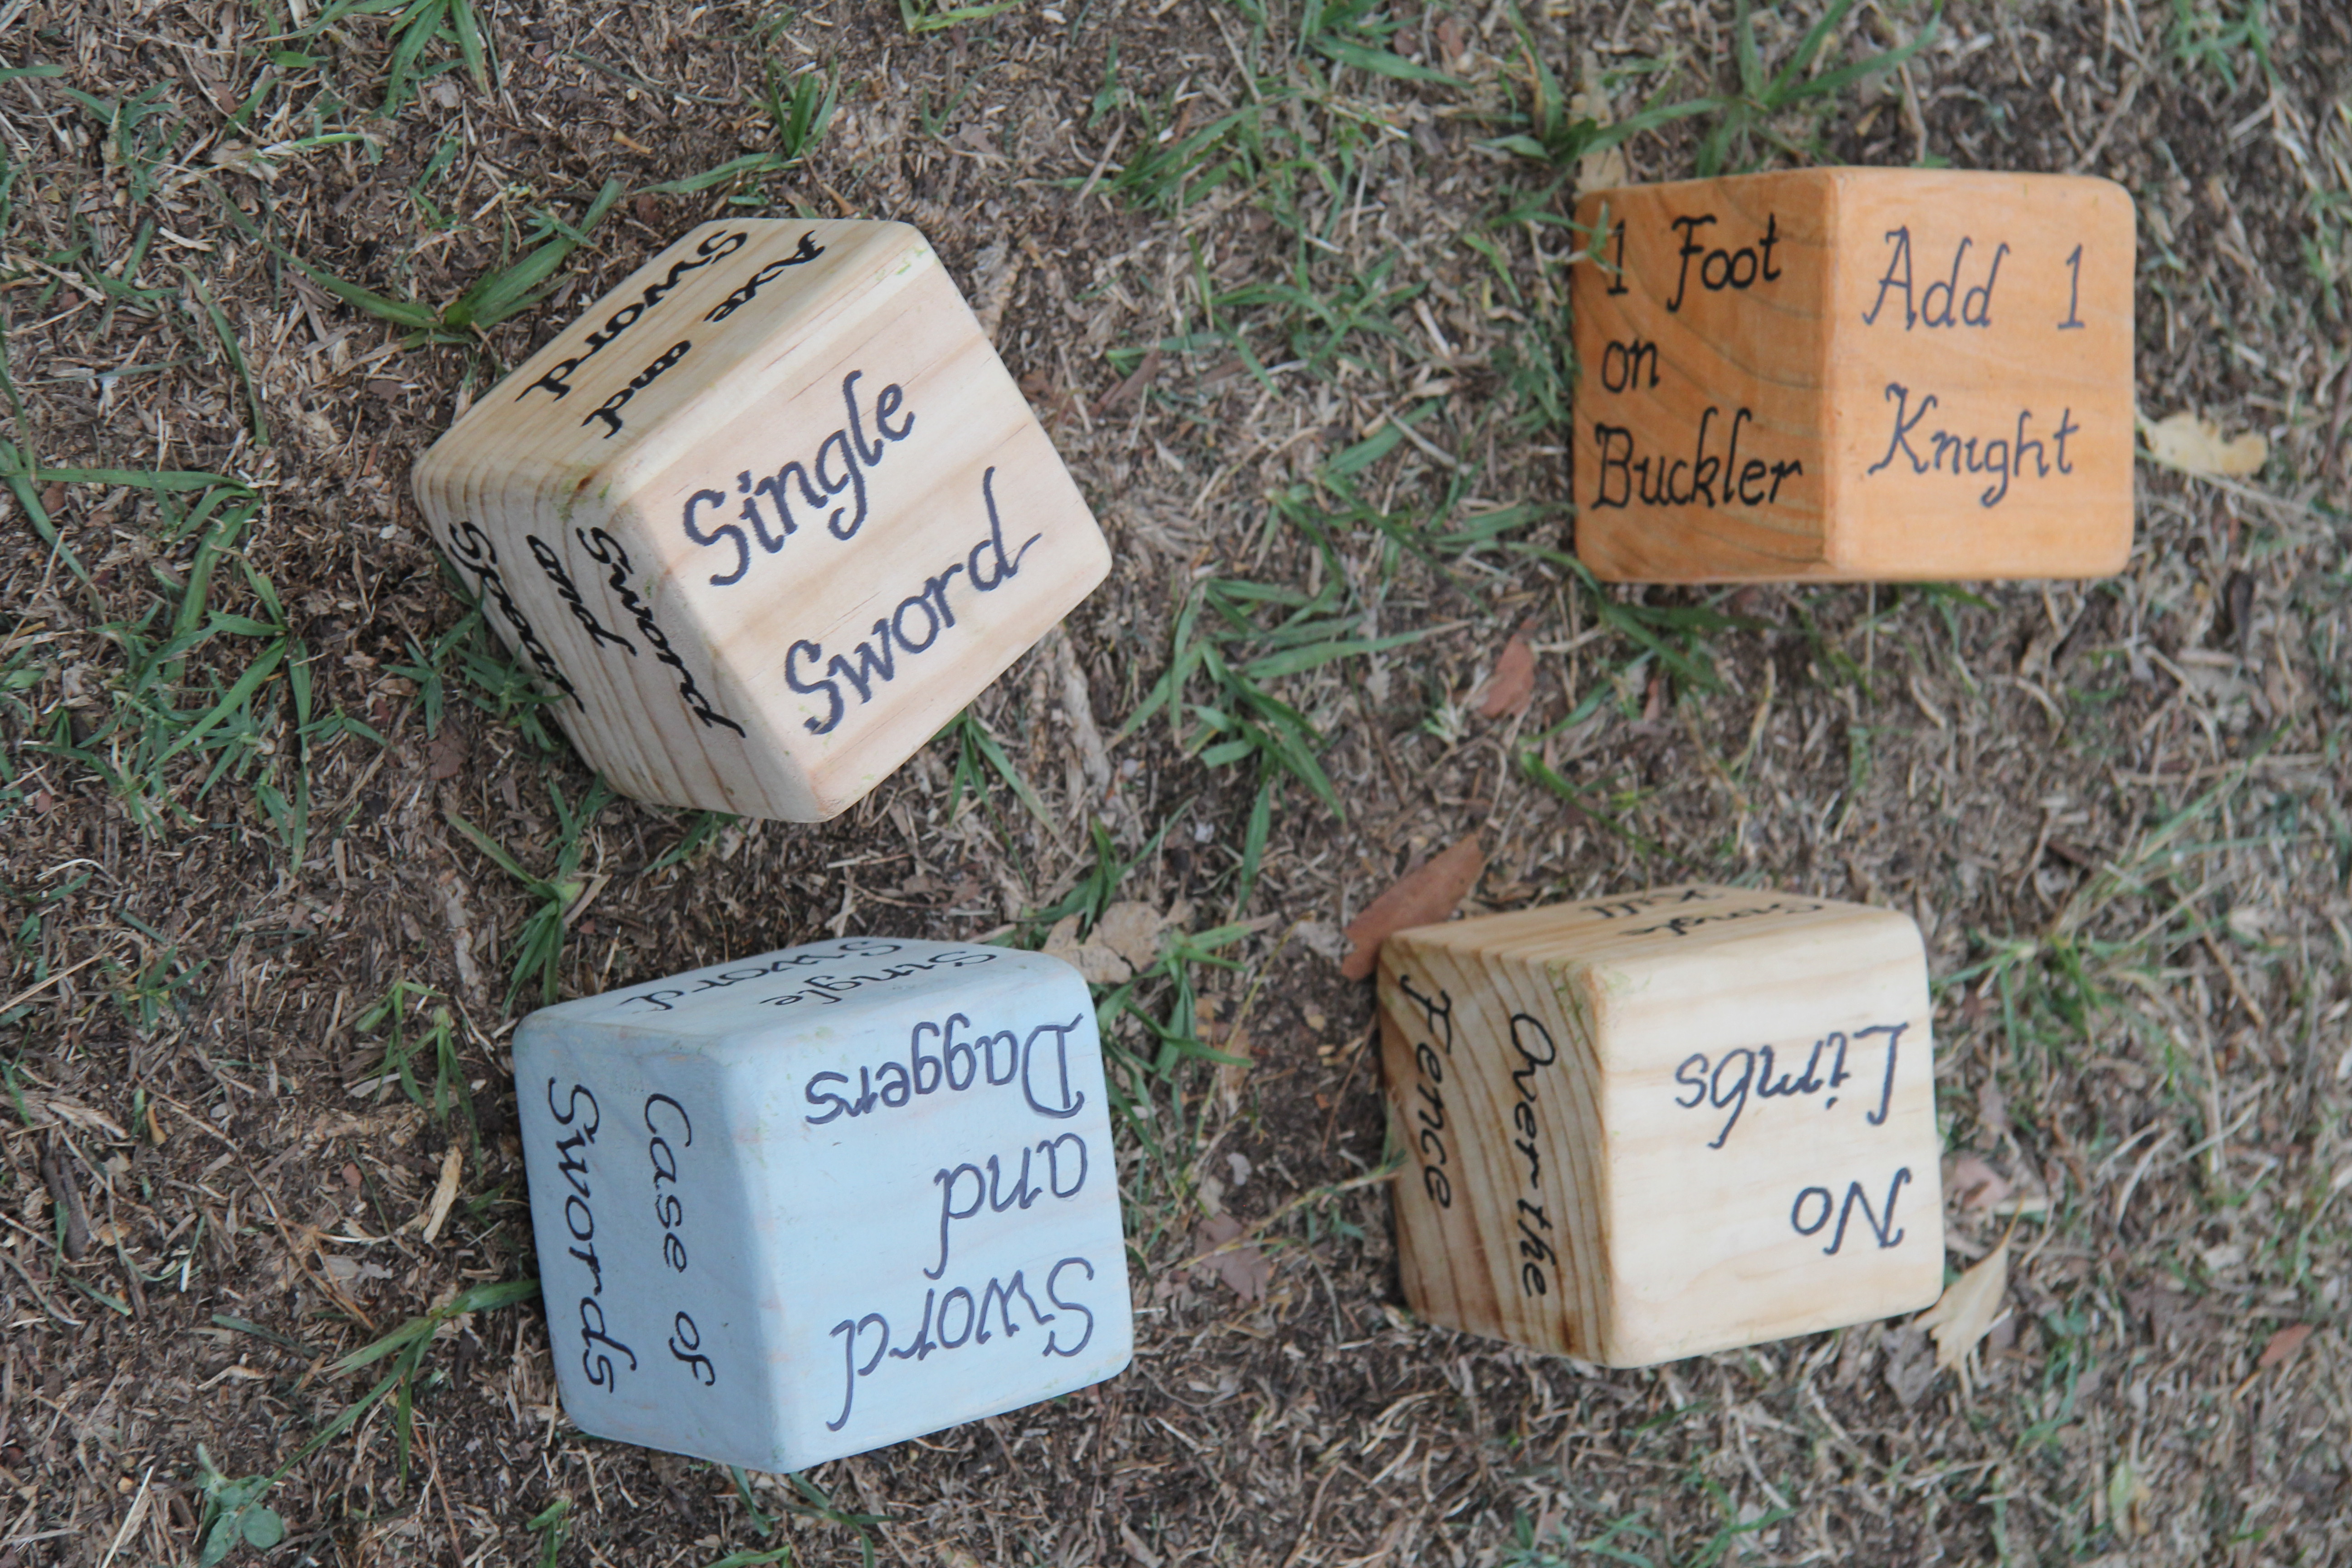 Axe and
Sword
Single
Sword
Sword
and
Spear
1 Foot
on
Buckler
Add 1
Knight
Single
Sword
Sword
and
Daggers
Case of
Swords
No
Limbs
Over the
Fence
Single
Kill